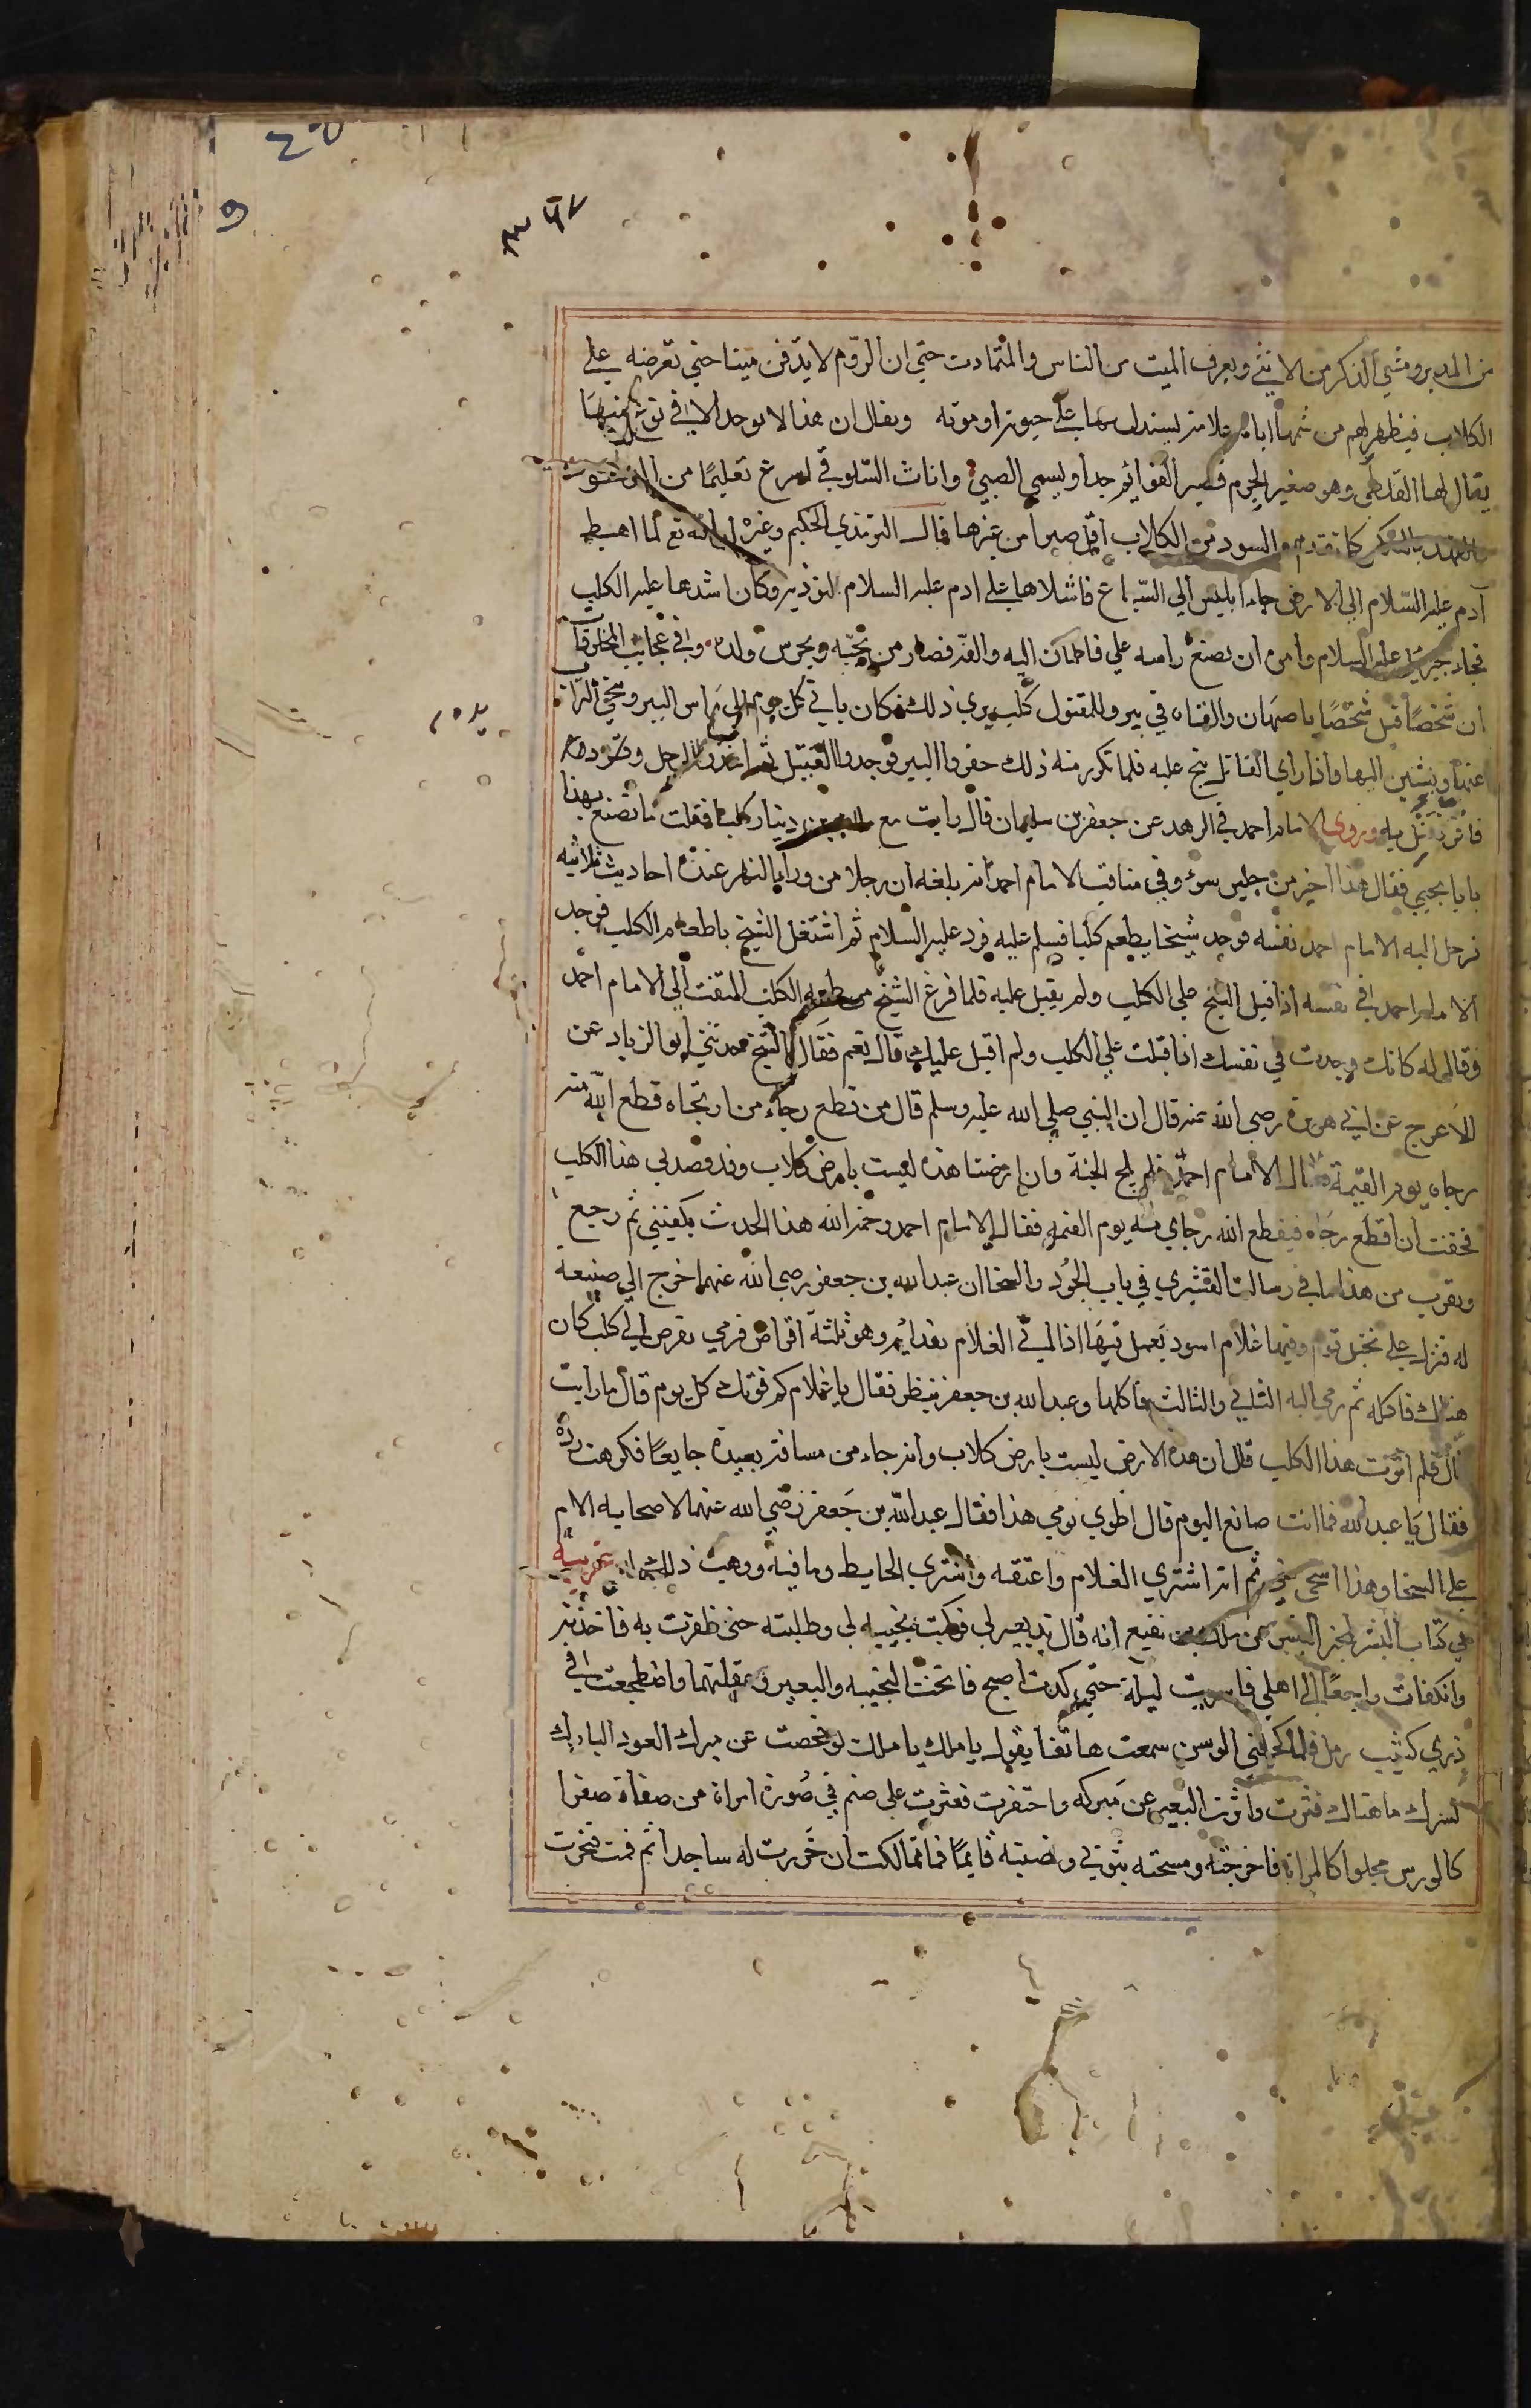 من المدبر ومشي الذكر من الانثى ويعرف الميت من الناس والمتماوت حتي ان الروم لا يدفن ميتا حتي تعرضه على
الكلاب فيظهر لهم من شمها اياه علامة يستدل بها على حيوته او موته ويقال ان هذا لا يوجد الا في نوع منها
يقال لها القلطي وهو صغير الجرم قصير القوائم جدا ويسمي الصيني واناث السلوقي اسرع تعليما من الذكور
والفهد بالعكس كما تقدم والسود من الكلاب اقل صبرا من غيرها قال الترمذي الحكيم وغيره ان الله تع لما اهبط
آدم عليه السلام الي الارض جاء ابليس الي السباع فاشلاها على ادم عليه السلام لتوذيه وكان اشدها عليه الكلب
فجاء جبريل عليه السلام وامره ان يضع راسه علي فاطمان اليه والفه فصار من يحبه ويحرس ولده وفي عجايب المخلوقات
ان شخصا قتل شخصا باصبهان والقاه في بير وللمقتول كلب يري ذلك فكان ياتي كل يوم الى راس البير وينحي التراب
عنها ويشير اليها واذا راي القاتل نبح عليه فلما تكرر منه ذلك حفروا البير فوجدوا القتيل ثم اخذوا الرجل وقرروه
فاقر فقتل به وروى الامام احمد في الزهد عن جعفر بن سليمان قال رايت مع دينار كلبا فقلت ما تصنع بهذا
يا با يحيي فقال هذا خير من جليس سوء وفي مناقب الامام احمد انه بلغه ان رجلا من وراء النهر عنده احاديث ثلاثيه
فرحل اليه الامام احمد نفسه فوجد شيخا يطعم كلبا فسلم عليه فرد عليه السلام ثم اشتغل الشيخ باطعام الكلب فوجد
الامام احمد في نفسه اذ اقبل الشيخ علي الكلب ولم يقبل عليه فلما فرغ الشيخ من طعمه الكلب التفت الي الامام احمد
وقال له كانك وجدت في نفسك اذ اقبلت علي الكلب ولم اقبل عليك قال نعم فقال الشيخ حدثني ابو الزناد عن
الاعرج عن ابي هريرة رضي الله عنه قال ان النبي صلي الله عليه وسلم قال من قطع رجاء من ارتجاه قطع الله منه
رجاه يوم القيمة قال الامام احمد فلم يلج الجنة وان ارضنا هذه ليست بارض كلاب وقد قصدني هذا الكلب
فخفت ان اقطع رجاه فيقطع الله رجاي منه يوم القيمه فقال الامام احمد رحمه الله هذا الحديث يكفيني ثم رجع
ويقرب من هذا ما في رسالت القشيري في باب الجود والسخا ان عبدالله بن جعفر رضي الله عنهما خرج الي ضيعه
له فنزل على نخيل قوم وفيها غلام اسود يعمل فيها اذا اتي الغلام بغدايه وهو ثلثة اقراص فرمي بقرص الي كلب كان
هناك فاكله ثم رمي اليه الثاني والثالث فاكلها وعبدالله بن جعفر ينظر فقال يا غلام كم قوتك كل يوم قال ما رايت
قال فلم آثرت هذا الكلب قال ان هذه الارض ليست بارض كلاب وانه جاء من مسافة بعيدة جايعا فكرهت رده
فقال يا عبدالله فما انت صانع اليوم قال اطوي يومي هذا فقال عبدالله بن جعفر رضي الله عنهما لاصحابه الام
على السخا وهذا اسخى مني ثم انه اشتري الغلام واعتقه واشتري الحايط وما فيه ووهب ذلك له غريبة
في كتاب البشر بخير البشر عن ملك بن نفيع انه قال ند بعير لي فركبت نجيبه لي وطلبته حتى ظفرت به فاخذته
وانكفات راجعا الي اهلي فاسريت ليلة حتي كدت اصبح فانخت النجيبه والبعير وعقلتهما واضطجعت في
ذري كثيب رمل فلما كحلني الوسن سمعت هاتفا يقول يا ملك يا ملك لو فحصت عن مبرك العود البارك
لسرك ما هناك فثرت واثرت البعير عن مبركه واحتفرت فعثرت على صنم في صورة امراة من صفاة صفرا
كالورس مجلوا كالمراة فاخرجته ومسحته بثوبي ونصبته قايما فما تمالكت ان خررت له ساجدا ثم قمت فنحرت